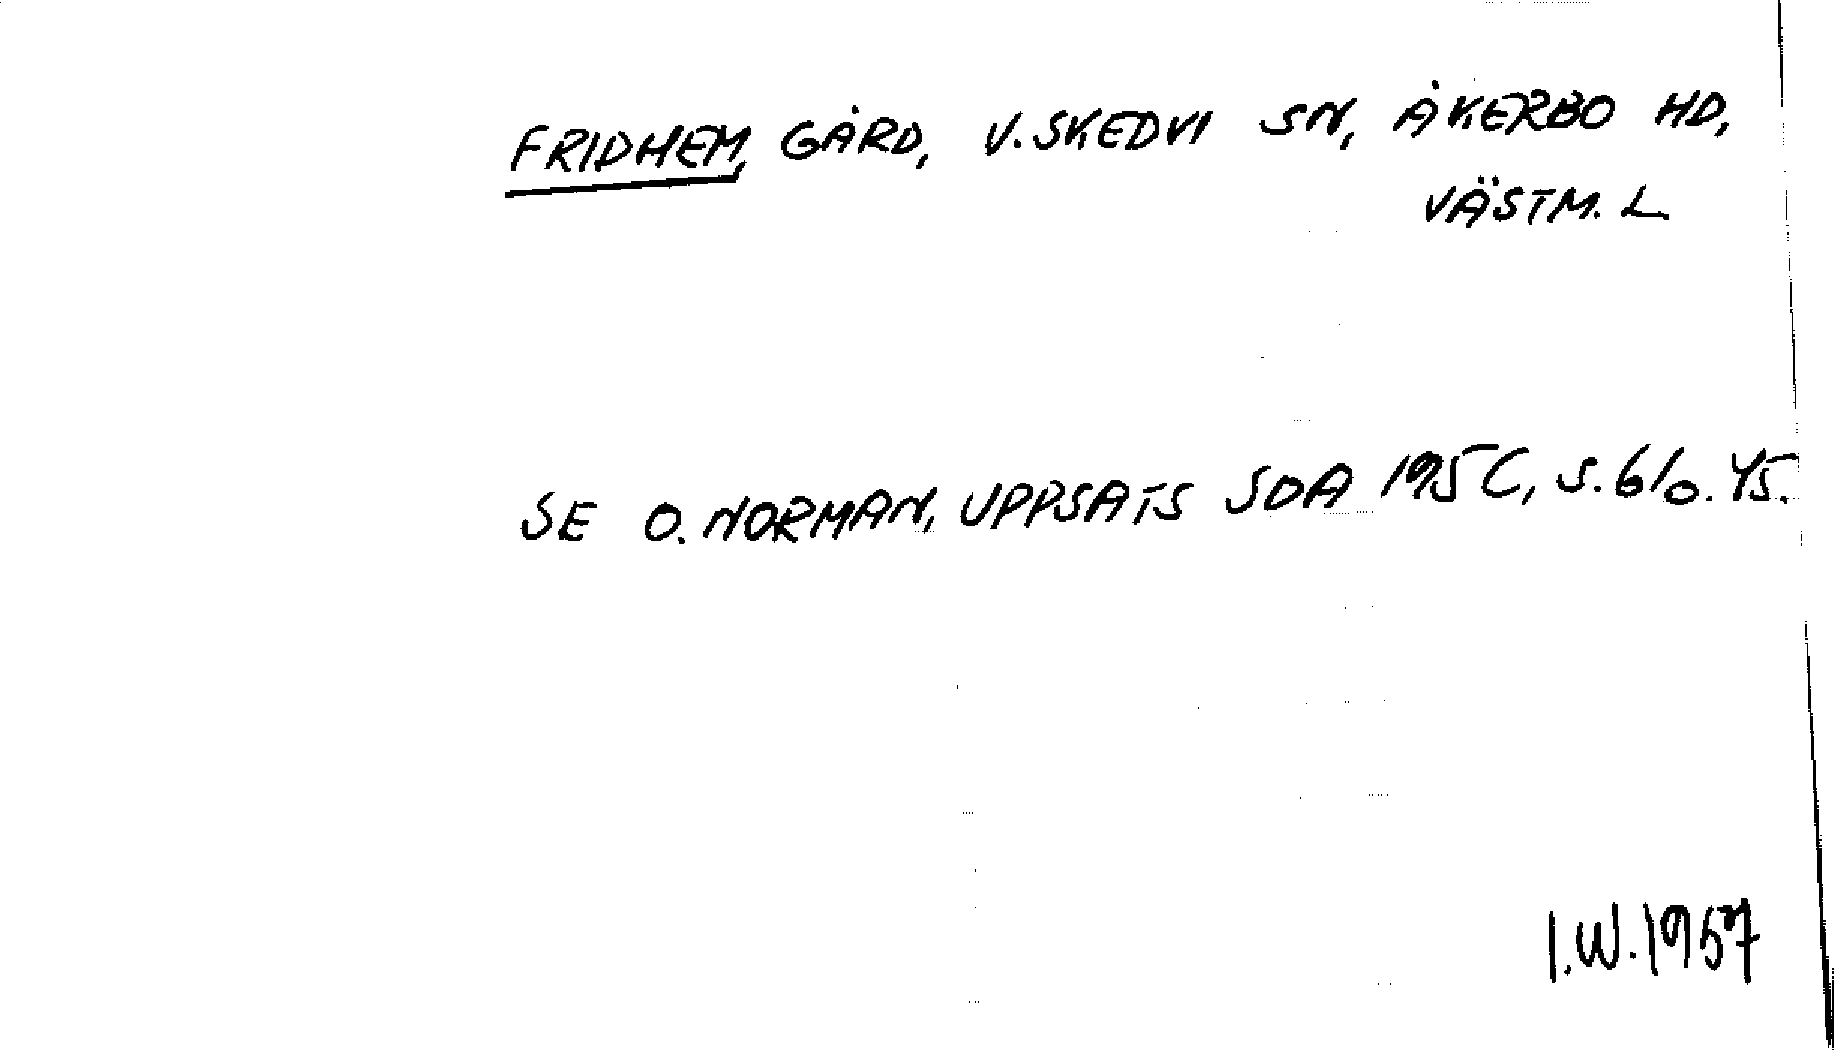 FRIDHEM, GÅRD, V. SKEDVI SN, ÅKERBO HD,
VÄSTM. L
SE O. NORMAN, UPPSATS SOA 195C, S. 6 / o. 45.
I.W. 1957